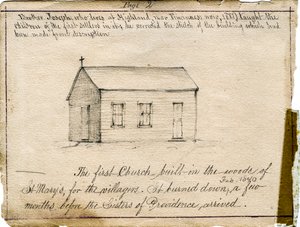 Page 2
Brother Joseph, who lives at Highland, near Vincennes, now, 1887, taught the
children of the first settlers in it, he corrected the sketch of the building which had
been made from description
The first Church built in the woods of
St Mary's, for the villagers. It burned down, a few
Feb 1840
months before the Sisters of Providence arrived.